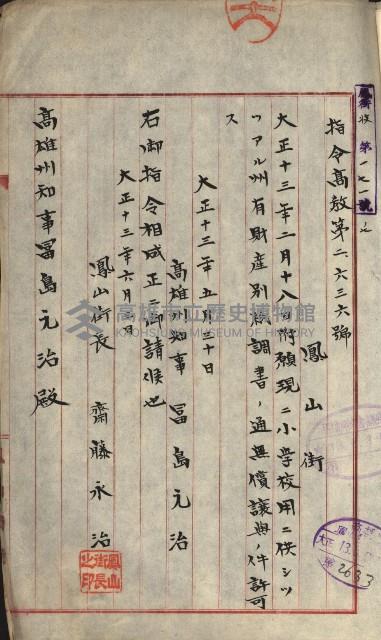 鳳街收第一七一號ノ
指令高教第二六三六號
鳳山街
大正十三年二月十八日附願現ニ小學校用ニ供シツ
ツアル州有財產別紙調書ノ通無償讓與ノ件許可
ス
大正十三年五月三十日
高雄州知事 冨島元治
右御指令相成正ニ御請候也
大正十三年六月 日
鳳山街長 齋藤永治
高雄州知事冨島元治殿
鳳山街長之印
高雄市立歷史博物館
KAOHSIUNG MUSEUM OF HISTORY
大正
13.
2633